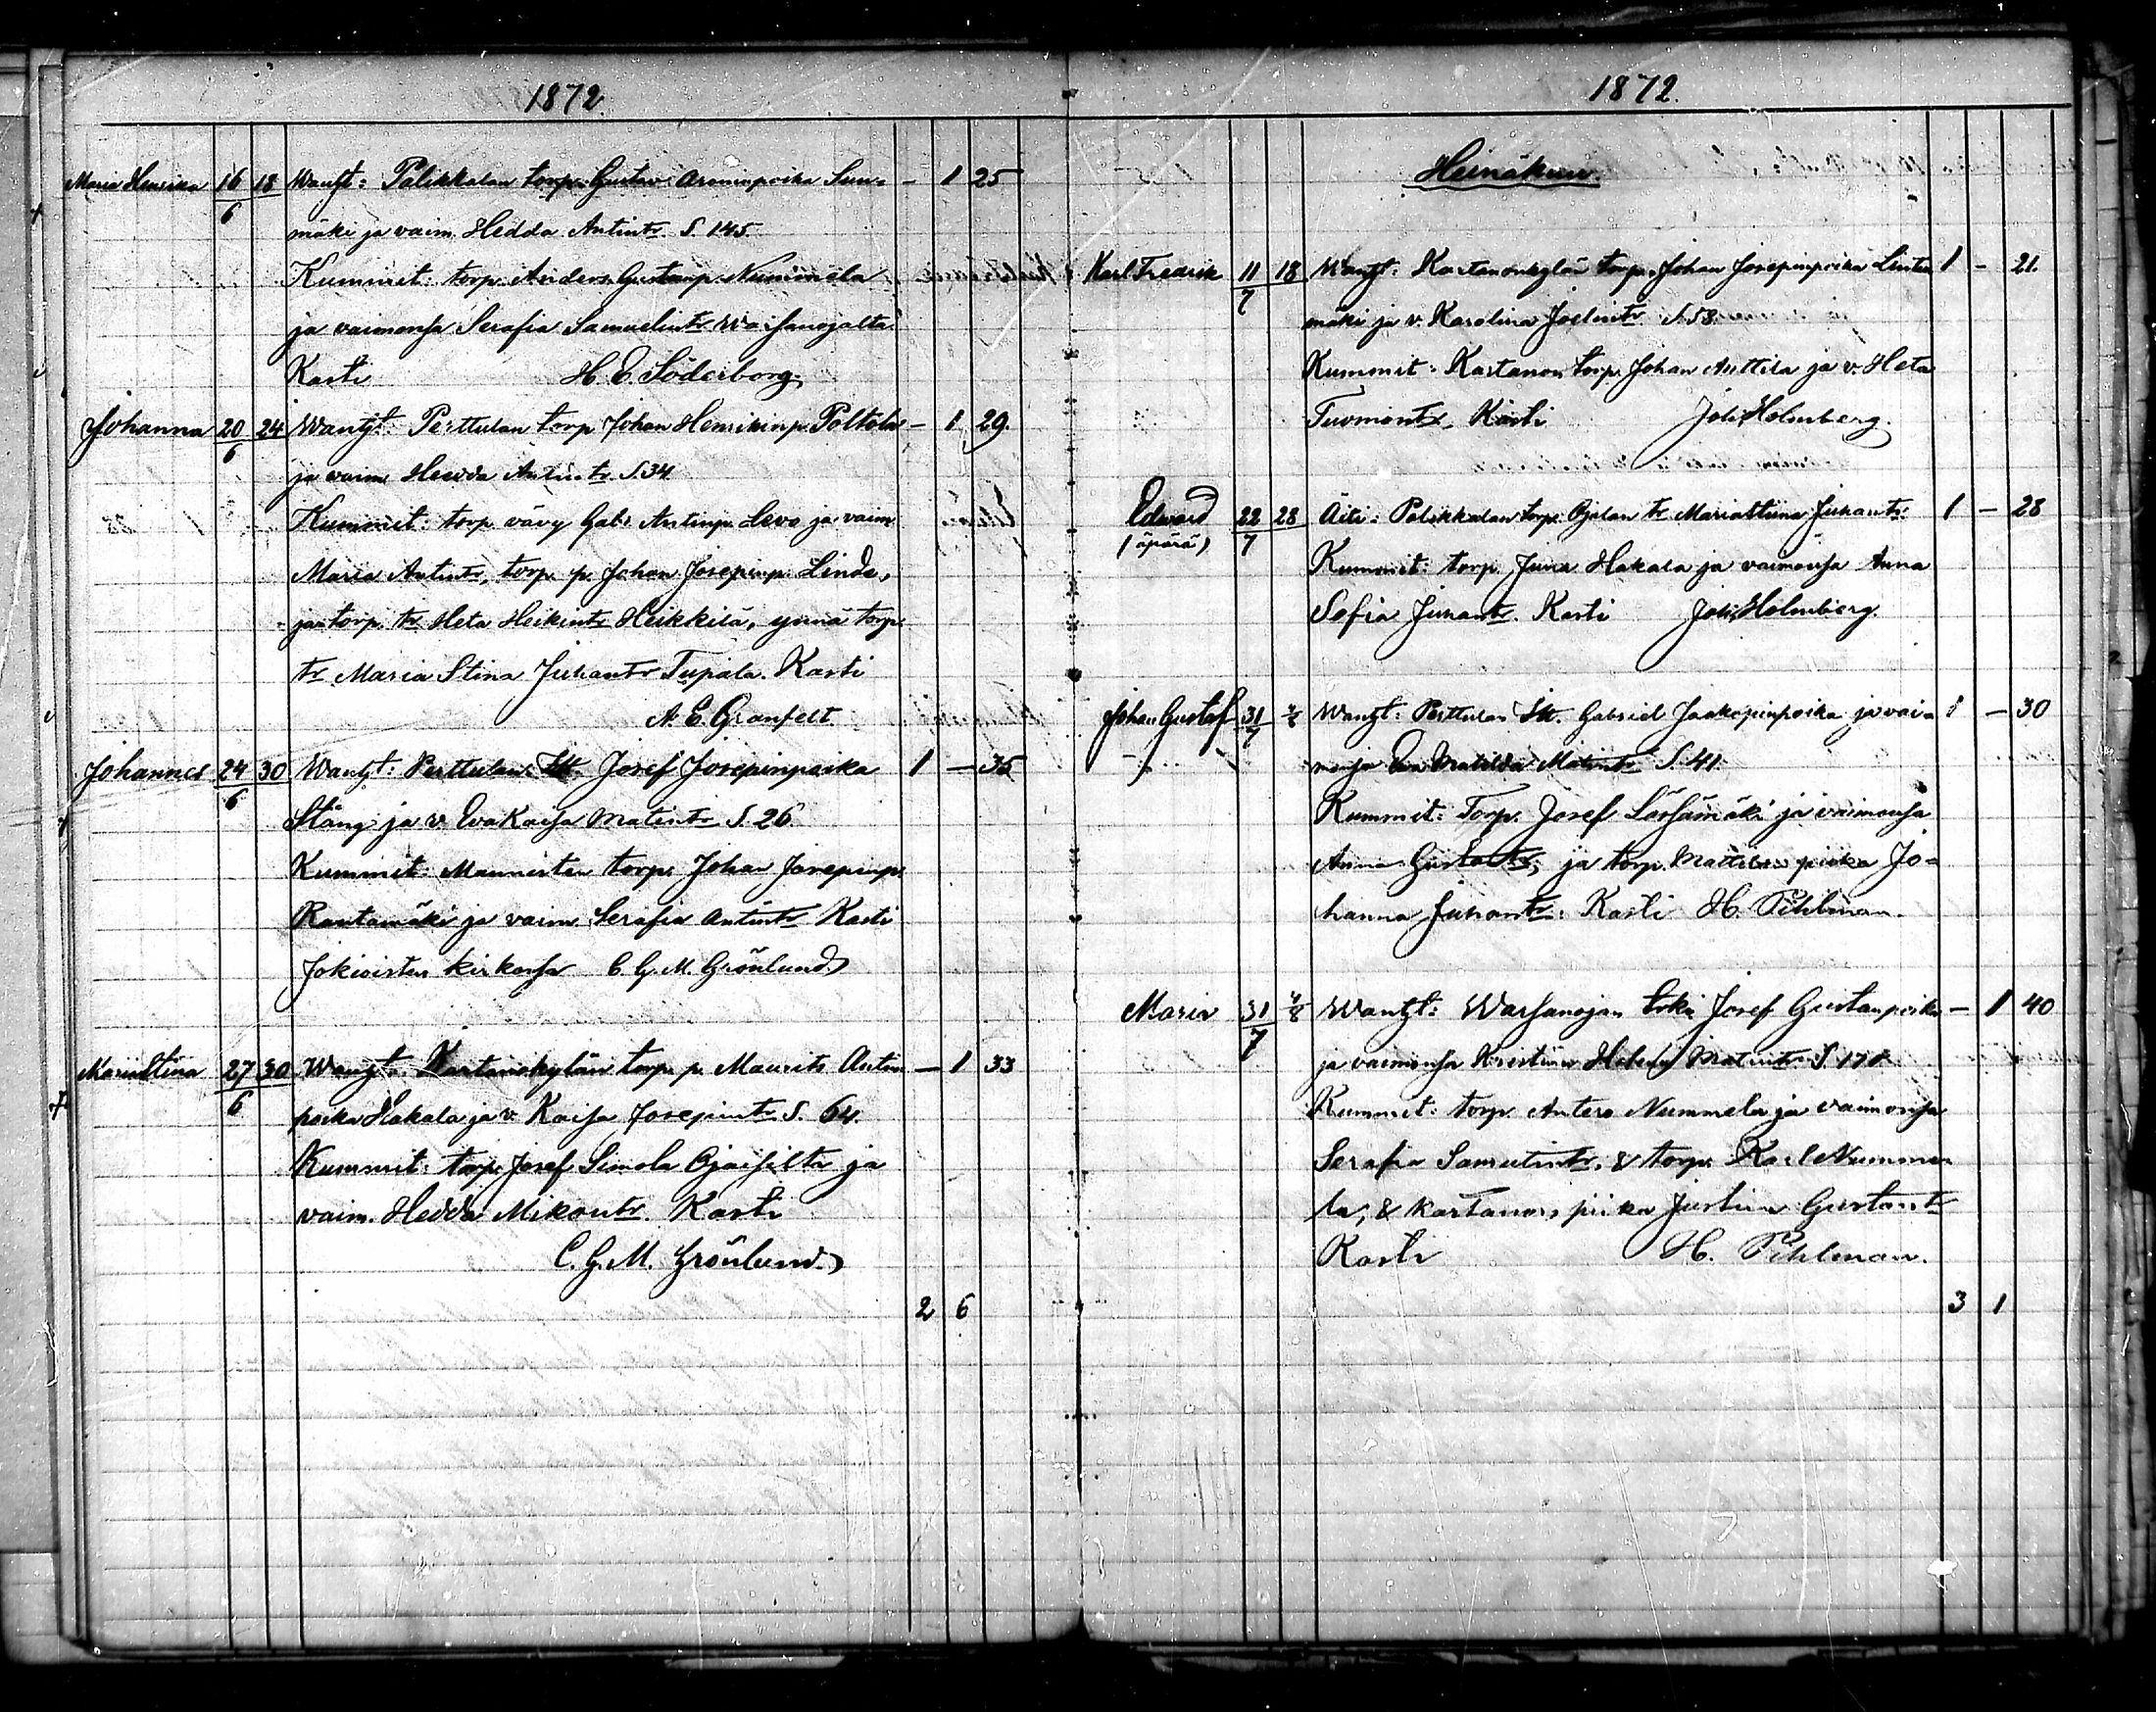 1872.
Maria Henrika 16/6 18 Wanht: Palikkalan torp. Gustav Aroninpoika Sun= - 1 25
mäki ja vaim. Hedda Antintr. S. 145
Kummit: torp. Anders Gustanp. Nummela
ja vaimonsa Serafia Samuelintr Waisanojalta
Kasti H. E. Söderborg.
Johanna 20/6 24 Wanht: Perttulan torp Johan Henrikinp. Poltola - 1 29.
ja vaim Hedda Antintr. S. 34
Kummit: torp. vävy Gabr. Antinp. Levo ja vaim
Maria Antintr, torp. p. Johan Josepinp. Linda,
ja torp. tr Heta Heikintr Heikkilä, ynnä torp.
tr Maria Stina Juhantr Tupala. Kasti
A. E. Granfelt.
Johannes 24/6 30 Wanht: Perttulan Itt. Josef Josepinpoika 1 - 35
Stäng ja v. Eva Kaisa Matintr S. 26.
Kummit: Mannisten torp. Johan Josepinp.
Rantamäki ja vaim. Serafia Antintr Kasti
Jokioisten kirkossa C. G. M. Grönlund.
Maria Stina 27/6 30 Wanht. Kartanokylän torp. p. Maurits Antin - 1 33
poika Hakala ja v. Kaisa Josepintr S. 64.
Kummit: torp. Josef Simola Ojaisilta ja
vaim. Hedda Mikontr. Kasti
C. G. M. Grönlund.
2 6
1872.
Heinäkuu.
Karl Fredrik 11/7 18 Wanht: Kartanonkylän torp. Johan Josepinpoika Linta 1 - 21.
mäki ja v. Karolina Joelintr S. 58.
Kummit: Kartanon torp. Johan Anttila ja v. Heta
Tuomontr, Kasti Joh. Holmberg.
Edward 22/7 28 Äiti: Palikkalan torp. Ojalan tr Maria Stiina Juhantr. 1 - 28
(äpärä)
Kummit: torp. Juha Hakala ja vaimonsa Anna
Sofia Juhantr. Kasti Joh. Holmberg.
Johan Gustaf 31/7 4/8 Wanht: Perttulan Itt. Gabriel Jaakopinpoika ja vaim 1 - 30
nonsa Eva Matilda Matintr S. 41.
Kummit: Torp. Josef Sorsamäki ja vaimonsa
Anna Gustantr, ja torp. Mattilan piika Jo=
hanna Juhantr: Kasti H. Pihlman.
Maria 31/7 4/8 Wanht: Warsanojan Josef Gustanpoika - 1 40
ja vaimonsa Kristiina Helena Matintr S. 178
Kummit: torp. Antero Nummela ja vaimonsa
Serafia Samulintr, & torp. Karl Numme
la, & Kartanon piika Justina Gustantr
Kasti H. Pihlman.
3 1